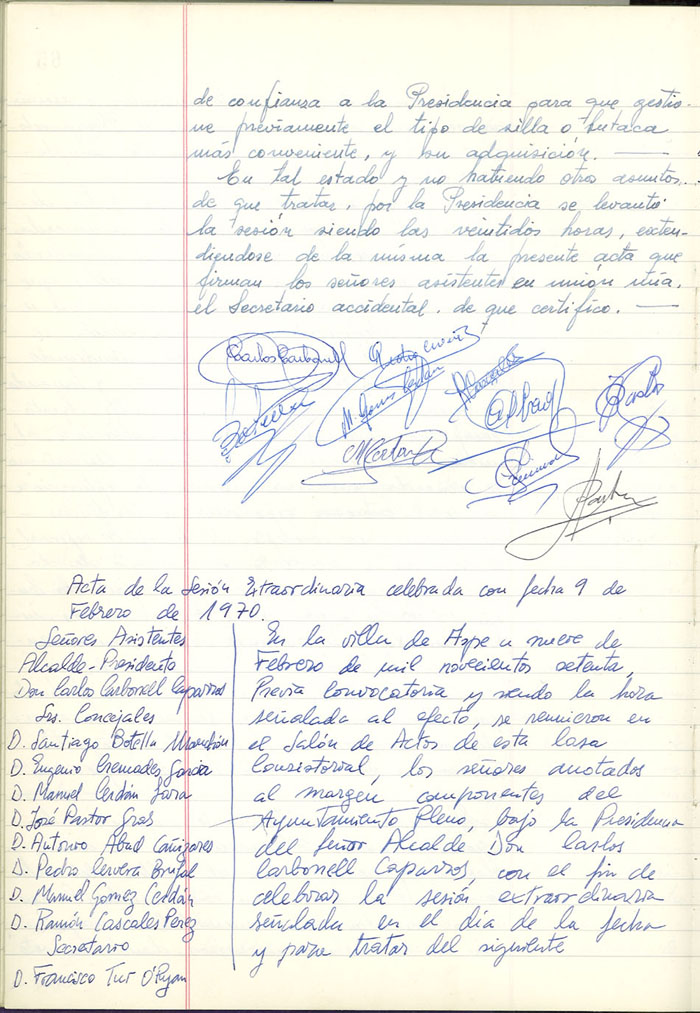 de confianza a la Presidencia para que gestio-
ne previamente el tipo de silla o butaca
más conveniente, y su adquisición.
En tal estado y no habiendo otros asuntos
de que tratar, por la Presidencia se levantó
la sesión siendo las veintidos horas, exten-
diendose de la misma la presente acta que
firman los señores asistentes en unión
el Secretario accidental. de que certifico.
Carlos Carbonell
Acta de la Sesión Extraordinaria celebrada con fecha 9 de
Febrero de 1970.
Señores Asistentes
Alcalde-Presidente
Don Carlos Carbonell Caparros
Srs. Concejales
D. Santiago Botella
D. Eugenio Cremades Garcia
D. Manuel Cerdán Jara
D. José Pastor Gras
D. Antonio Abad Cañizares
D. Pedro Cervera Brufal
D. Manuel Gomez Cerdán
D. Ramón Cascales Perez
Secretario
D. Francisco Tur O'Ryan
En la villa de Aspe a nueve de
Febrero de mil novecientos setenta,
Previa Convocatoria y siendo la hora
señalada al efecto, se reunieron en
el Salón de Actos de esta Casa
Consistorial, los señores anotados
al margen, componentes del
Ayuntamiento Pleno, bajo la Presidencia
del Señor Alcalde Don Carlos
Carbonell Caparros, con el fin de
celebrar la sesión extraordinaria
señalada en el día de la fecha
y para tratar del siguiente